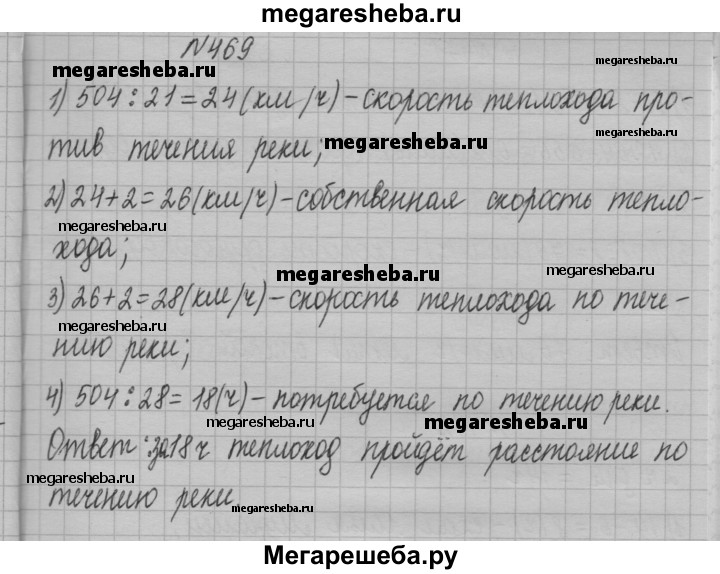 megaresheba.ru
N469
megaresheba.ru
megaresheba.ru
1) 504:21=24(км/ч)-скорость теплохода про-
megaresheba.ru
тив течения реки;
megaresheba.ru
2) 24+2=26(км/ч)-собственная скорость тепло-
megaresheba.ru
хода;
megaresheba.ru
megaresheba.ru
3) 26+2=28(км/ч)-скорость теплохода по тече-
megaresheba.ru
нию реки;
4) 504:28=18(ч)-потребуется по течению реки.
megaresheba.ru
Ответ: за 18 ч теплоход пройдёт расстояние по
megaresheba.ru
megaresheba.ru
течению реки.
megaresheba.ru
Мегарешеба.ру